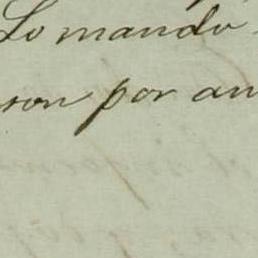 Lo mando
son por an